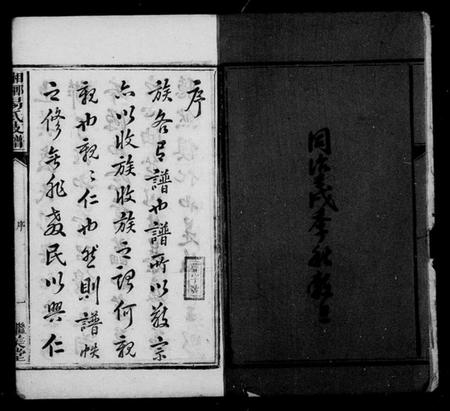 同治壬戌季秋
序
族各有譜也譜所以敬宗
亦以收族收族之謂何親
親也親〻仁也然則譜牒
之修無非教民以興仁
湘鄉易氏支譜
序
一
堂